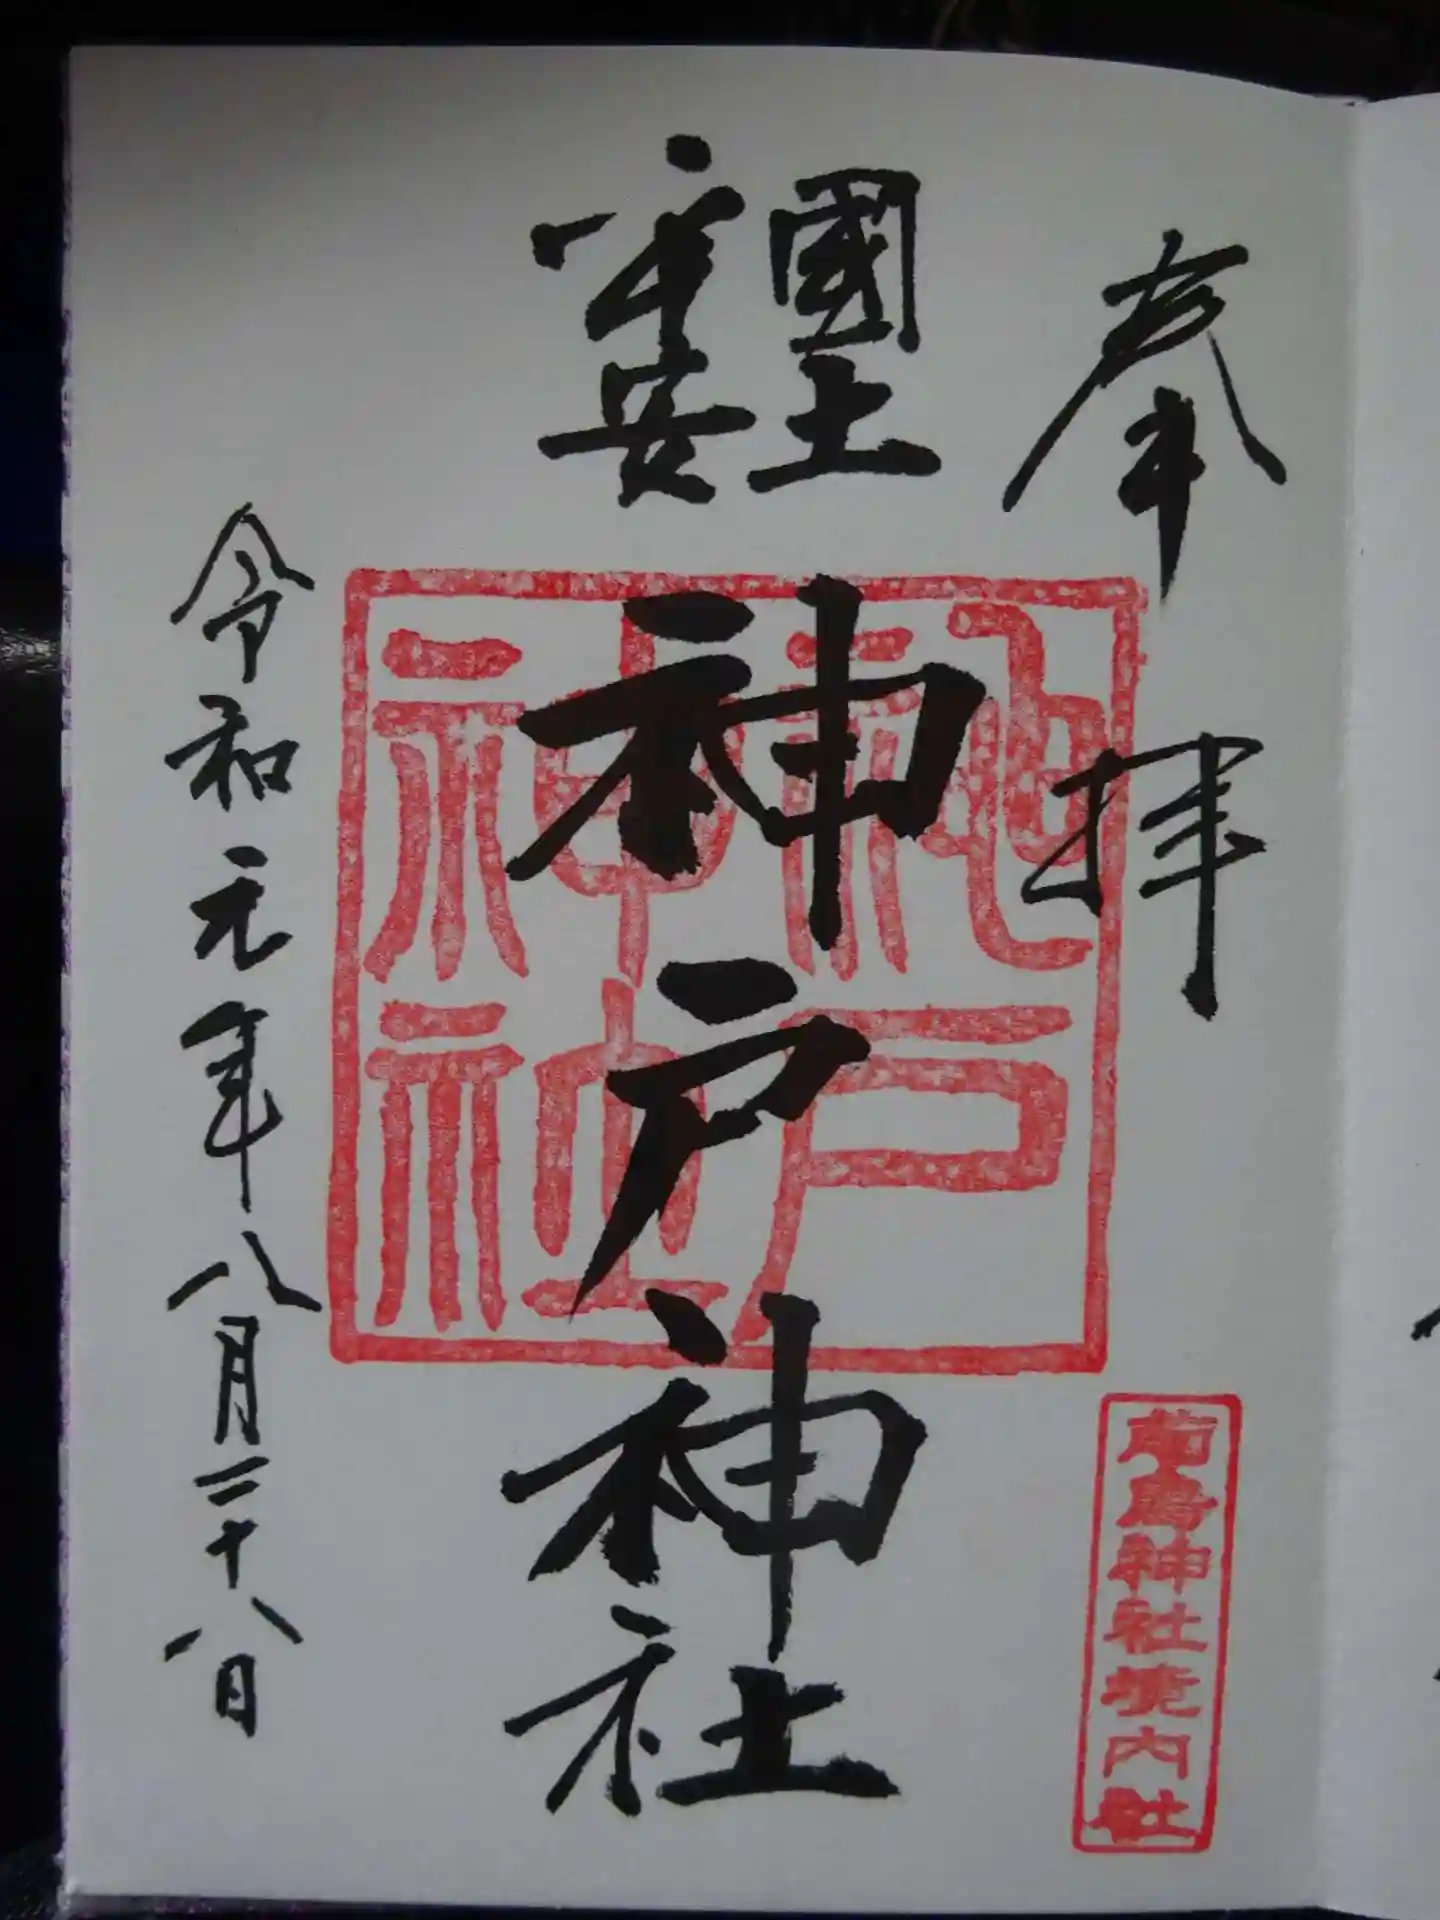 奉拝
國土
平安
神戸神社
令和元年八月二十八日
神戸
神社
神社境内社